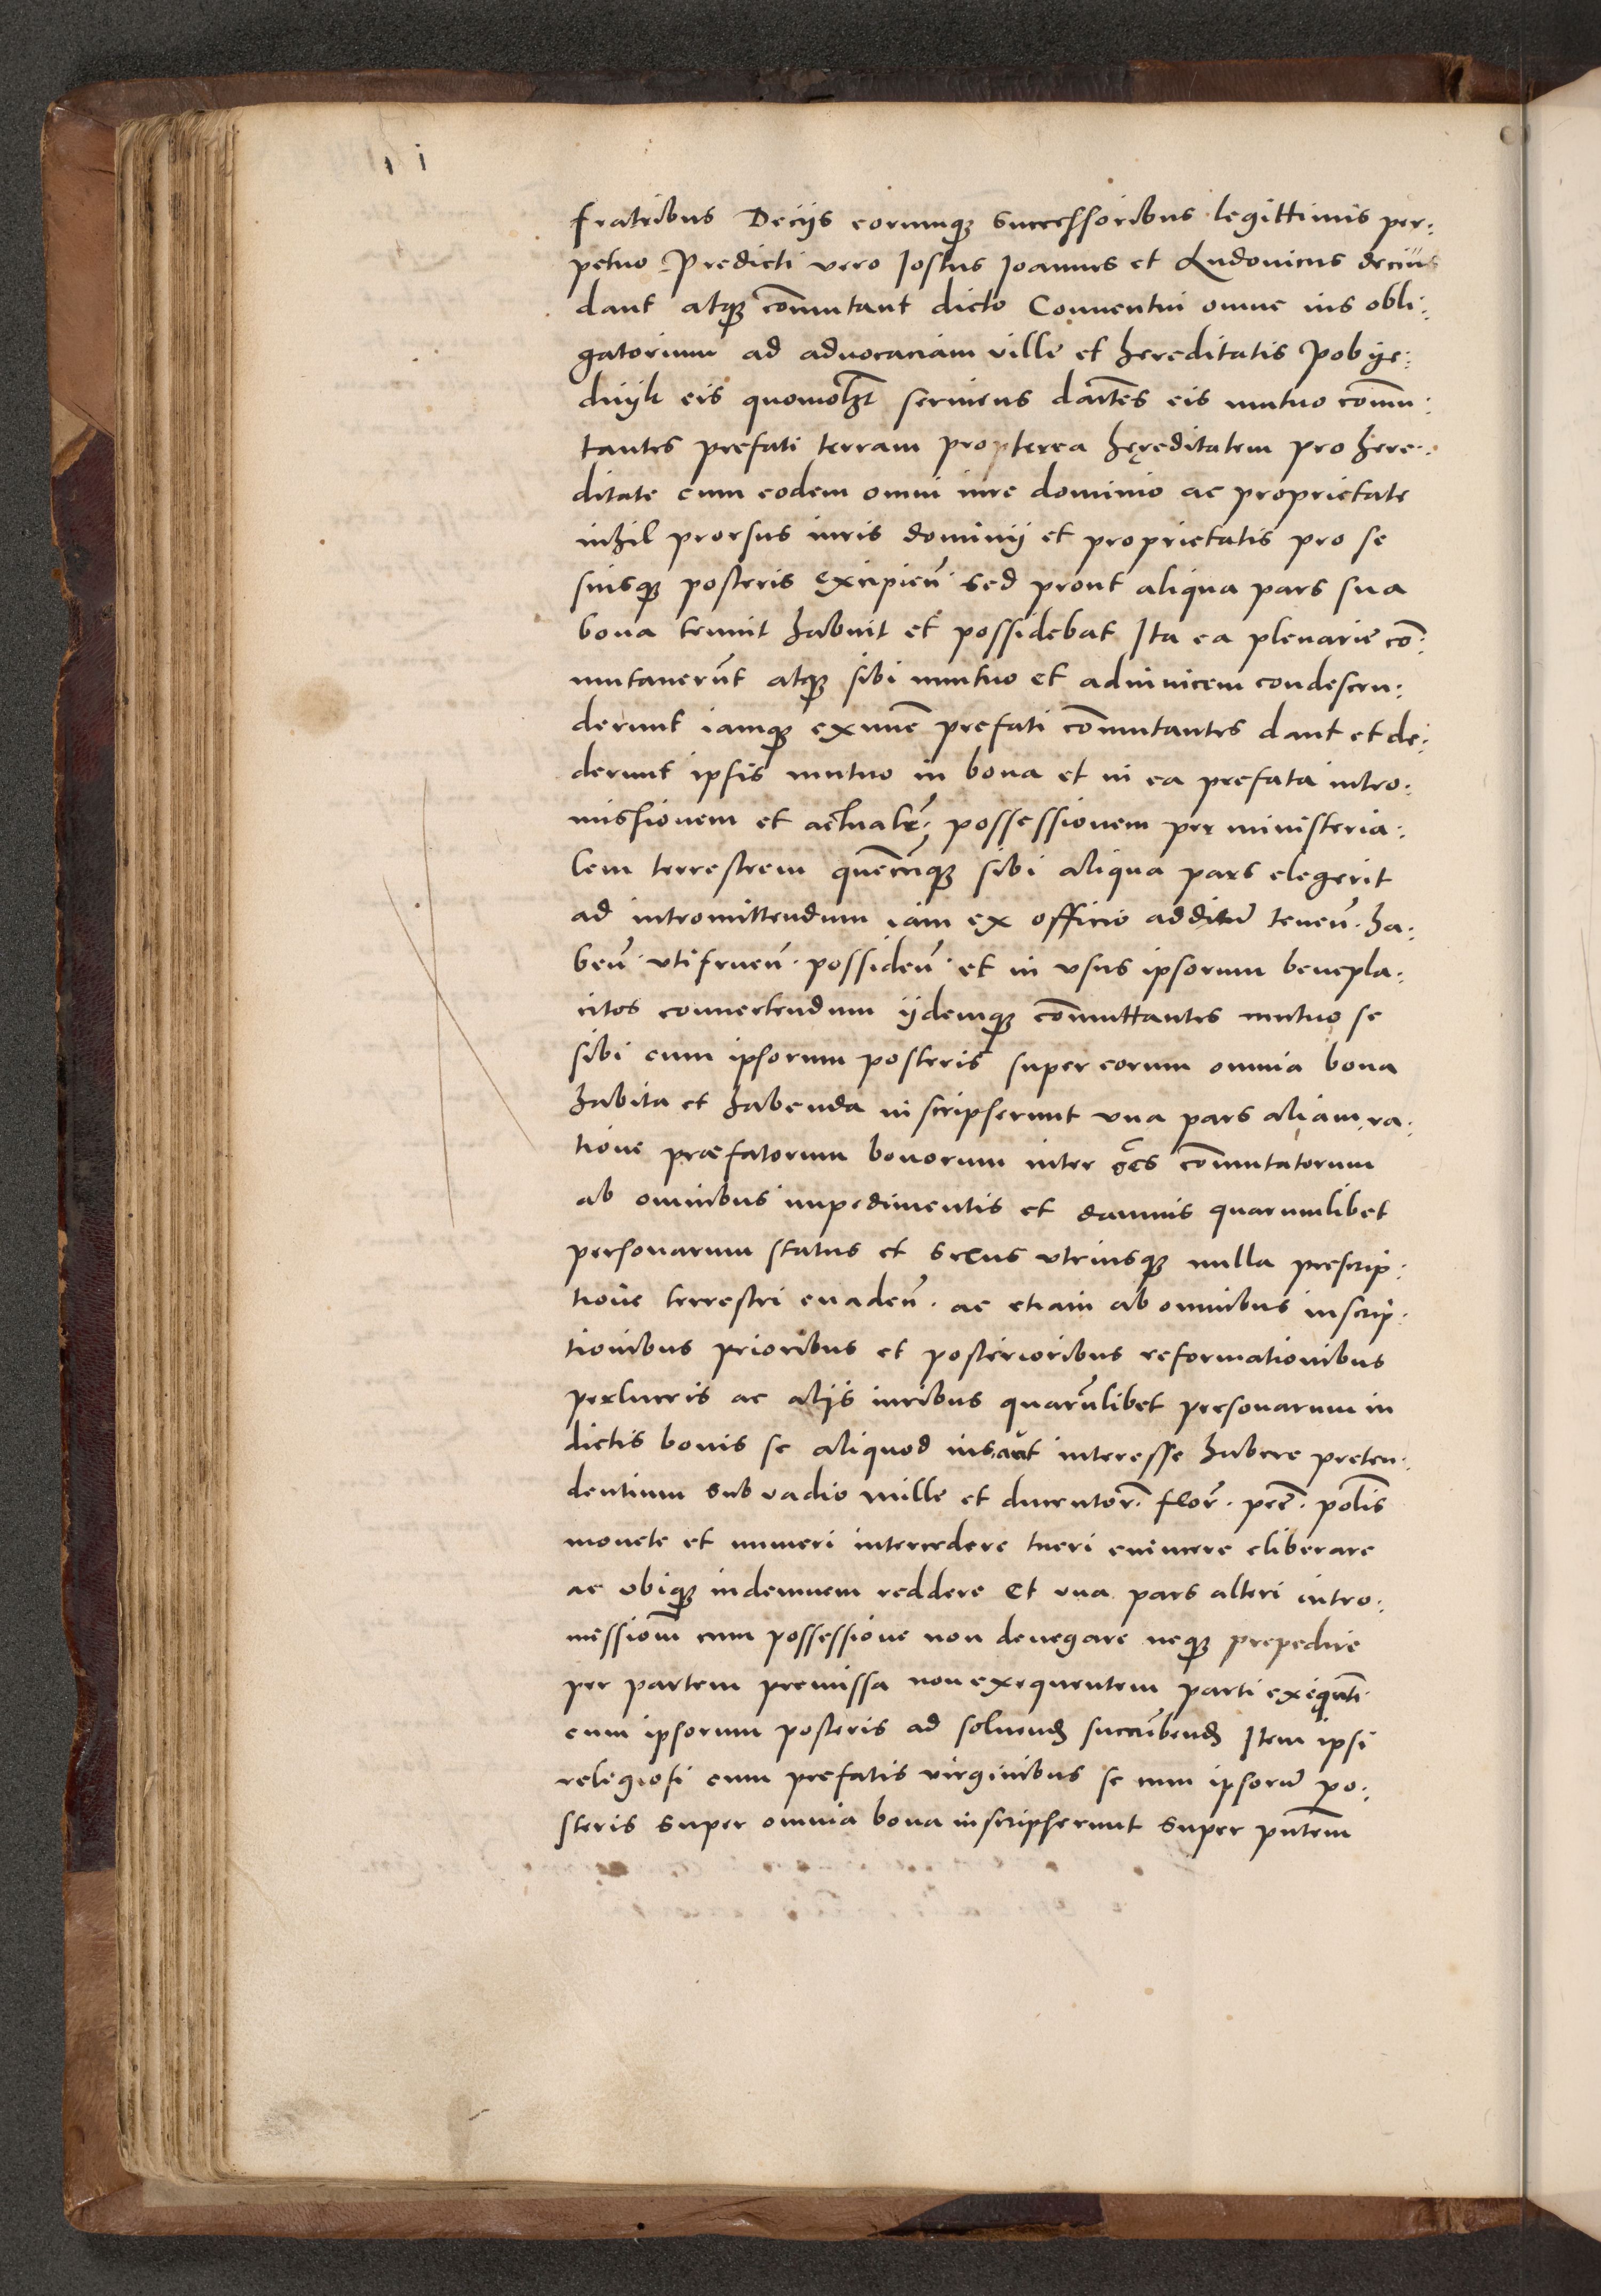 fratribus Decijs eorumqȝ successoribus legittimis per:
petuo Predicti vero Jostus Joannes et Ludouicus decius
dant atqȝ cōmutant dicto Conuentui omne ius obli:
gatorium ad aduocaciam ville et hereditatis Pobye:
dnyk eis quomolȝt seruiens dāntes eis mutuo comm:
tantes prefati terram propterea hęreditatem pro here:
ditate cum eodem omni iure dominio ac proprietate
nihil prorsus iuris dominij et proprietatis pro se
suisqȝ posteris excipieñ sed prout aliqua pars sua
bona tenuit habuit et possidebat Ita ea plenarie cō:
mutauerūt atqȝ sibi mutuo et adinuicem condescen:
derunt iamqȝ exnunc prefati cōmutantes dant et de:
derunt ipsis mutuo in bona et in ea prefata intro:
missionem et actualē: possessionem per ministeria:
lem terrestrem quēcūqȝ sibi aliqua pars elegerit
ad intromittendum iam ex officio additū teneñ. ha:
beñ vtifrueñ. possideñ et in vsus ipsorum benepla:
citos conuertendum ijdemqȝ cōmuttantes mutuo se
sibi cum ipsorum posteris super eorum omnia bona
habita et habenda inscripserunt vna pars aliam ra:
tione præfatorum bonorum inter se cōmutatorum
ab omnibus impedimentis et damnis quarumlibet
personarum status et sexus vtriusqȝ nulla prescrip:
tione terrestri euadeñ. ac etiam ab omnibus inscrip:
tionibus prioribus et posterioribus reformationibus
perlucris ac alijs iuribus quarūlibet personarum in
dictis bonis se aliquod ius aut interesse habere preten:
dentium sub vadio mille et ducentor. flor. pec. polis
monete et numeri intercedere tueri euincere eliberare
ac vbiqȝ indemnem reddere et vna pars alteri intro:
messionē cum possessione non denegare neqȝ prepedire
per partem premissa non exequentem parti exequnti
cum ipsorum posteris ad soluend succūbend Item ipsi
religiosi cum prefatis virginibus se cum ipsorū po:
steris super omnia bona inscripserunt super pntem